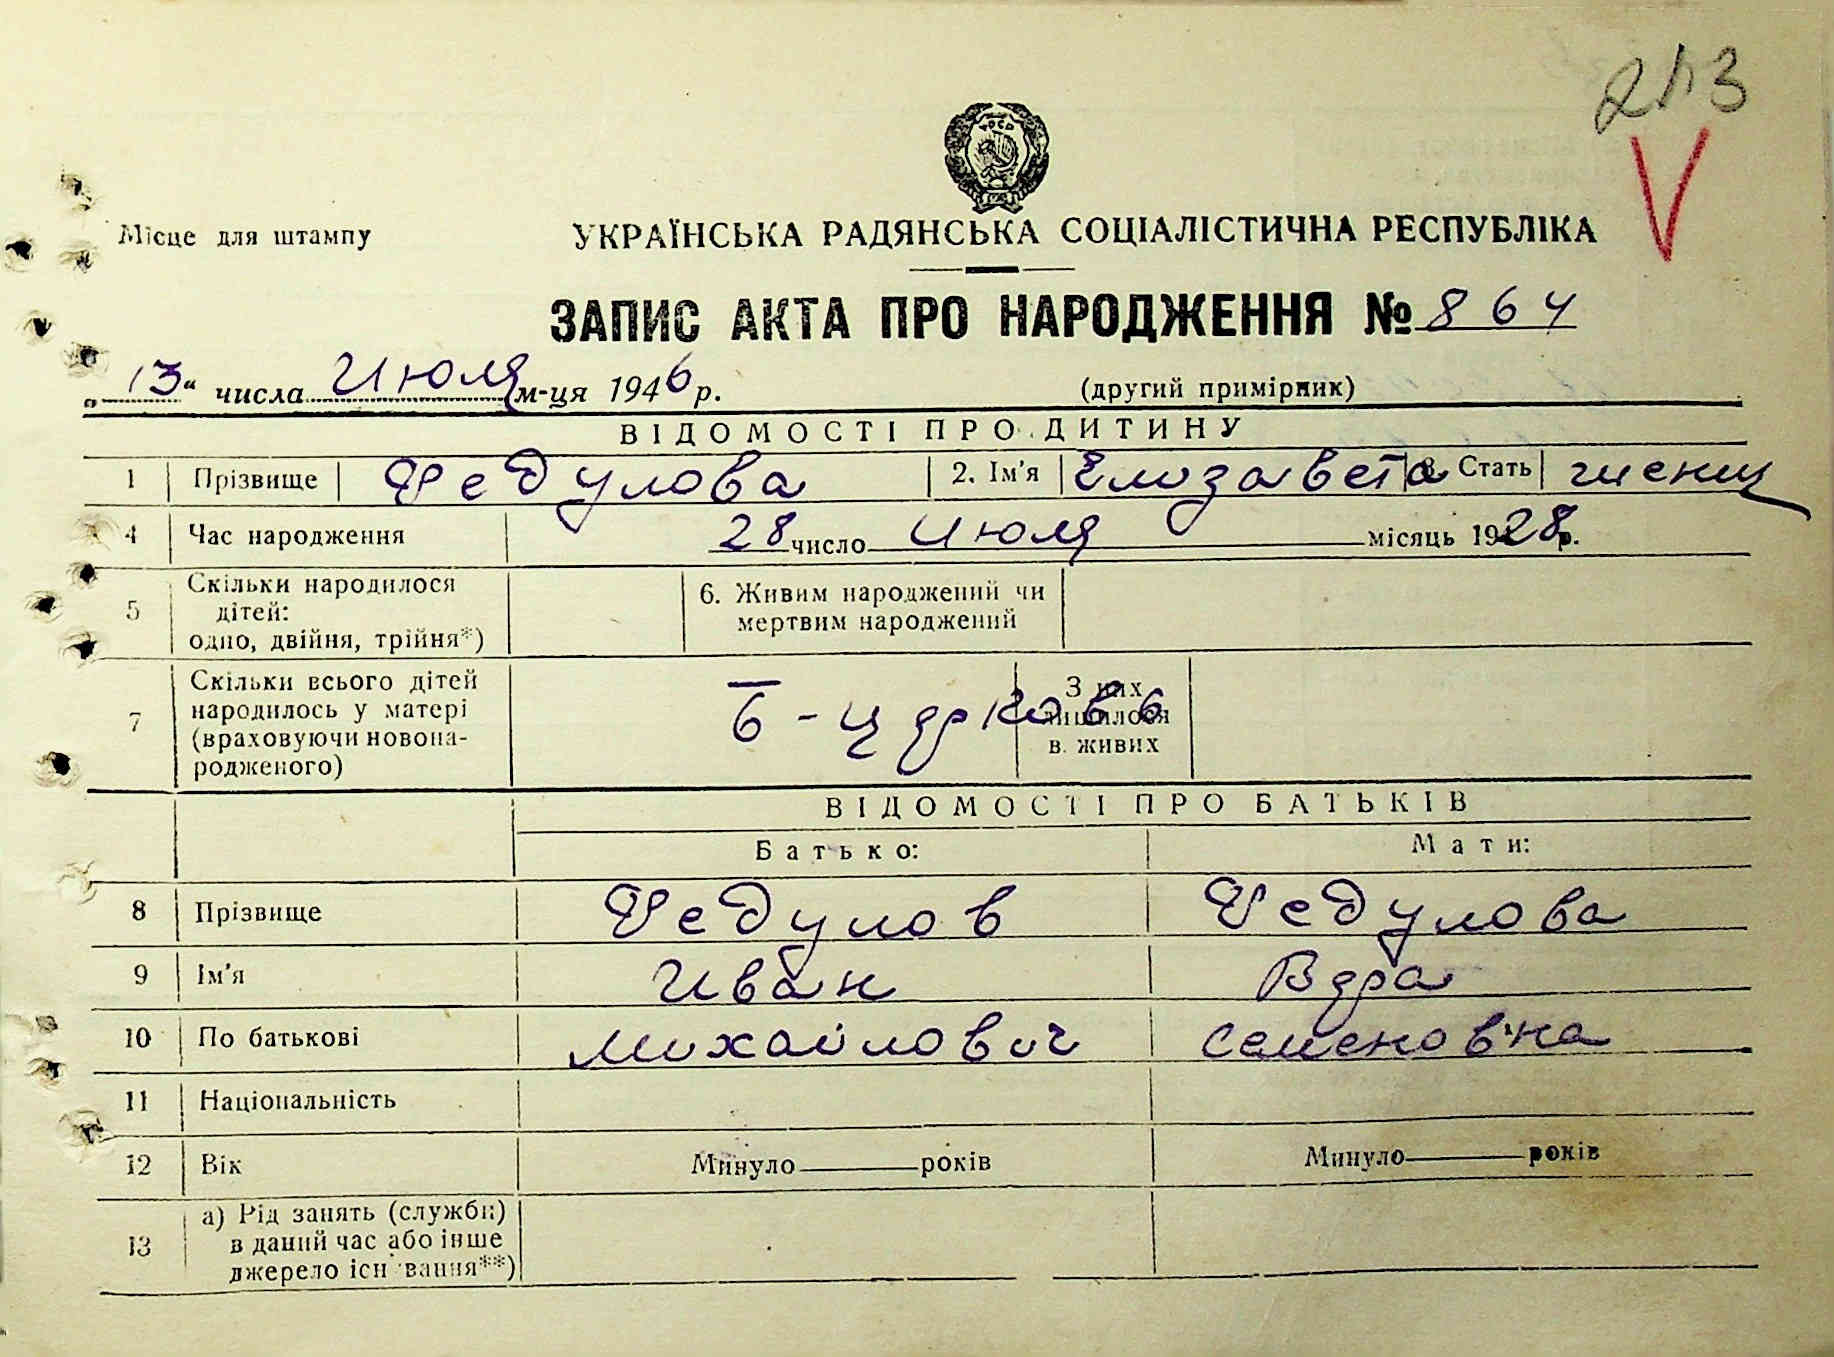 213
Місце для штампу
УКРАЇНСЬКА РАДЯНСЬКА СОЦІАЛІСТИЧНА РЕСПУБЛІКА
ЗАПИС АКТА ПРО НАРОДЖЕННЯ № 864
„13“ числа Июля м-ця 1946 р. (другий примірник)
ВІДОМОСТІ ПРО ДИТИНУ
1 Прізвище Федулова 2. Ім'я Елизавета 3. Стать женщ
4 Час народження 28 число Июля місяць 1928 р.
5 Скільки народилося дітей: одно, двійня, трійня*) 6. Живим народжений чи мертвим народжений
7 Скільки всього дітей народилось у матері (враховуючи новонародженого) З них лишилося в живих
ВІДОМОСТІ ПРО БАТЬКІВ
Батько: Мати:
8 Прізвище Федулов Федулова
9 Ім'я Иван Вера
10 По батькові Михайлович Семеновна
11 Національність
12 Вік Минуло років Минуло років
13 а) Рід занять (служби) в даний час або інше джерело існування**)